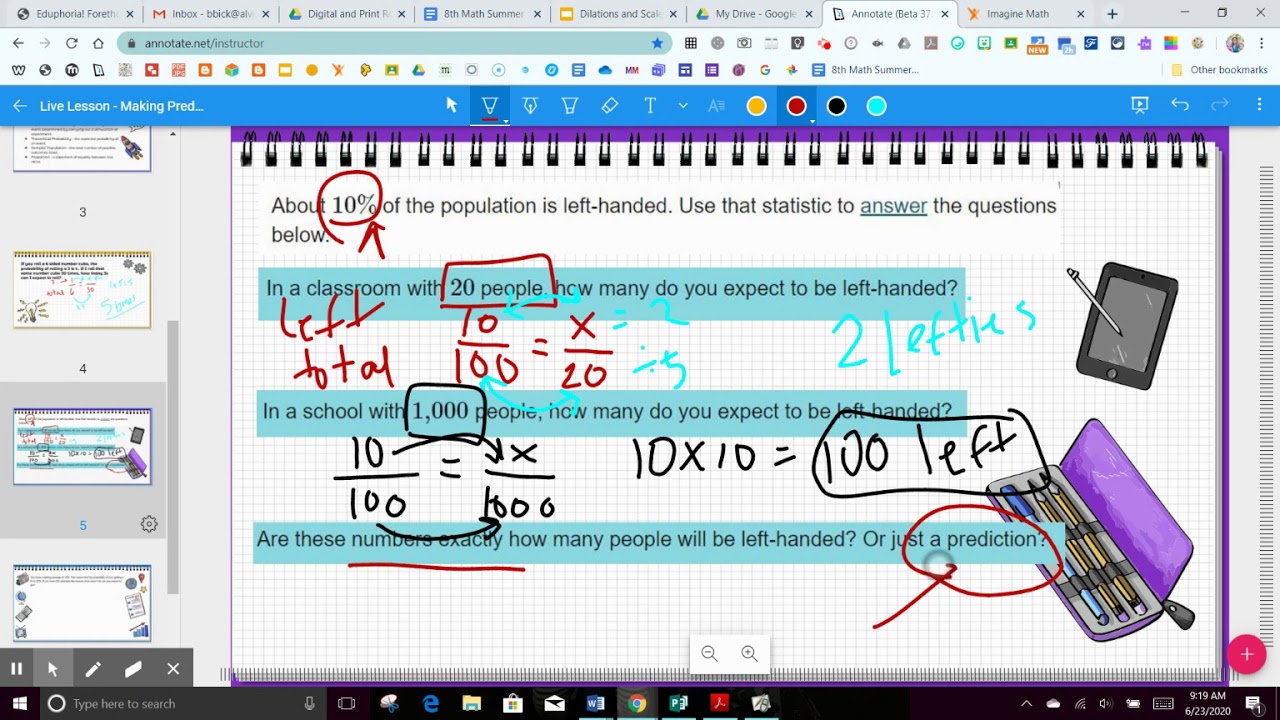 Eduphoria! Foretho
Inbox - bbick@alv
Digital and Print R
8th Math Summer
Dilations and Scale
My Drive - Google
Annotate (Beta 37
Imagine Math
annotate.net/instructor
8th Math Summer...
Other bookmarks
Live Lesson - Making Pred...
3
4
5
About 10% of the population is left-handed. Use that statistic to answer the questions
below.
In a classroom with 20 people, how many do you expect to be left-handed?
left 10 x = 2
total 100 = 20 ÷5
2 lefties
In a school with 1,000 people, how many do you expect to be left handed?
10 = 1x
100 1000
10 x 10 = 100 left
Are these numbers exactly how many people will be left-handed? Or just a prediction?
Type here to search
9:19 AM
6/23/2020